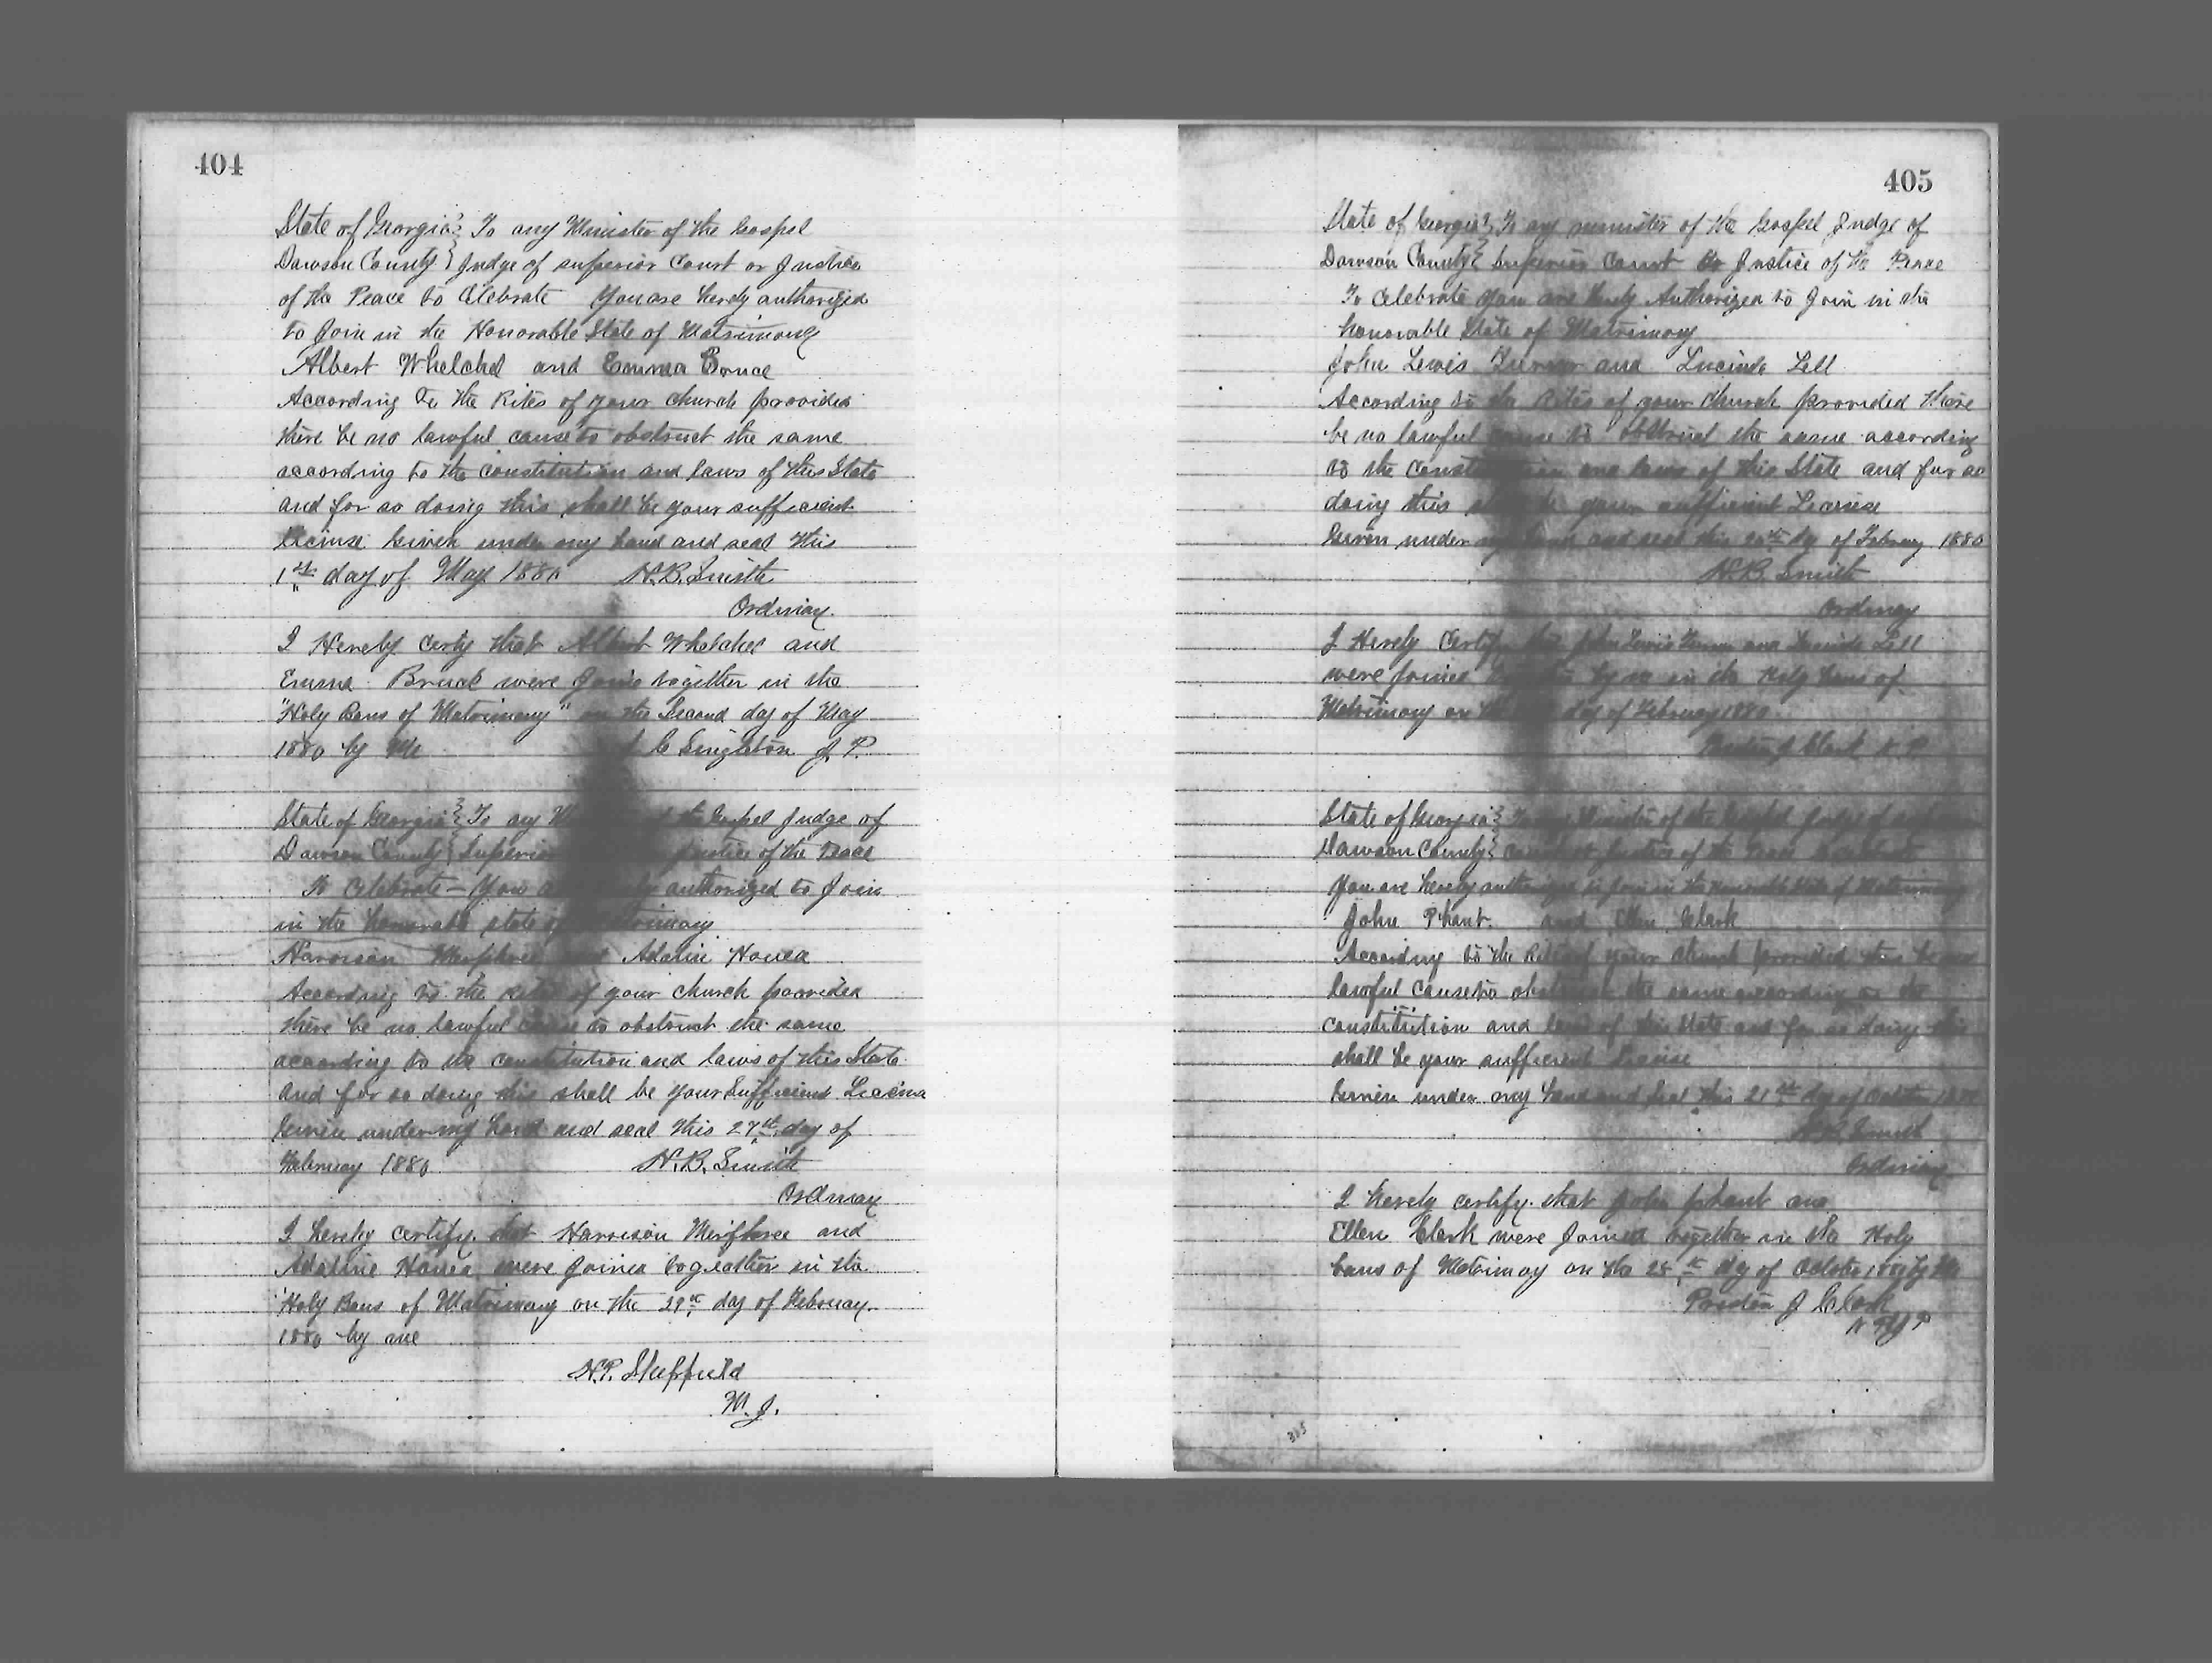 404
State of Georgia } To any Minister of the Gospel
Dawson County } Judge of superior Court or Justice
of the Peace to Celebrate You are hereby authorized
to Join in the Honorable State of Matrimony
Albert Whelchel and Emma Bruce
According to the Rites of your church provided
there be no lawful cause to obstruct the same
according to the constitution and laws of this State
and for so doing this shall be your sufficient
license Given under my hand and seal this
1st day of May 1880 H.B. Smith
Ordinay.
I Hereby certy that Albert Whelchel and
Emma Bruce were Joined together in the
"Holy Bans of Matrimony" on the Second day of May
1880 by Me C Singleton J.P.
State of Georgia } To any the Gospel Judge of
Dawson County } Superior Justice of the Peace
To Celebrate - You authorized to Join
in the honorable state of Matrimony
Harrison Adaline Honea
According to the rites of your church provided
there be no lawful cause to obstruct the same
according to the constitution and laws of this State
and for so doing this shall be your Sufficient
Given under my hand and seal this 27th day of
February 1880 H.B. Smith
Ordinay
I hereby certify that Harrison and
Adaline Honea were joined togeather in the
"Holy Bans of Matrimony on the 29th day of February
1880 by me
H.P. Sheffield
M.J.
405
State of Georgia } To any minister of the Gospel Judge of
Dawson County } Superior Court or Justice of the Peace
To Celebrate you are hereby Authorized to Join in the
honorable State of Matrimony
John Lewis and Lucinda
According to the Rites of your Church provided there
be no lawful cause to obstruct the same according
to the and laws of this State and for so
doing this your sufficient License
Given under my hand and seal this 20th dy of Febuary 1880
H.B. Smith
Ordinay
I Hereby Certify John Lewis and Lucinda
were joined by me in the Holy bans of
Matrimony on day of February 1880
Clark N.P.
State of Georgia } of the Gospel
Dawson County } Justice of the
You are hereby authorized to Join in the honorable State of Matrimony
John Phant. and Ellen Clark
According to the Rites of your church provided
lawful cause to obstruct the same according to the
constitution and laws of this State and for so doing this
shall be your sufficient License
Given under my hand and seal this 21st day of October
H.B. Smith
Ordinay
I hereby certify that John phant and
Ellen Clark were Joined together in the Holy
bans of on the day of October by Me
Preston J Clark
305